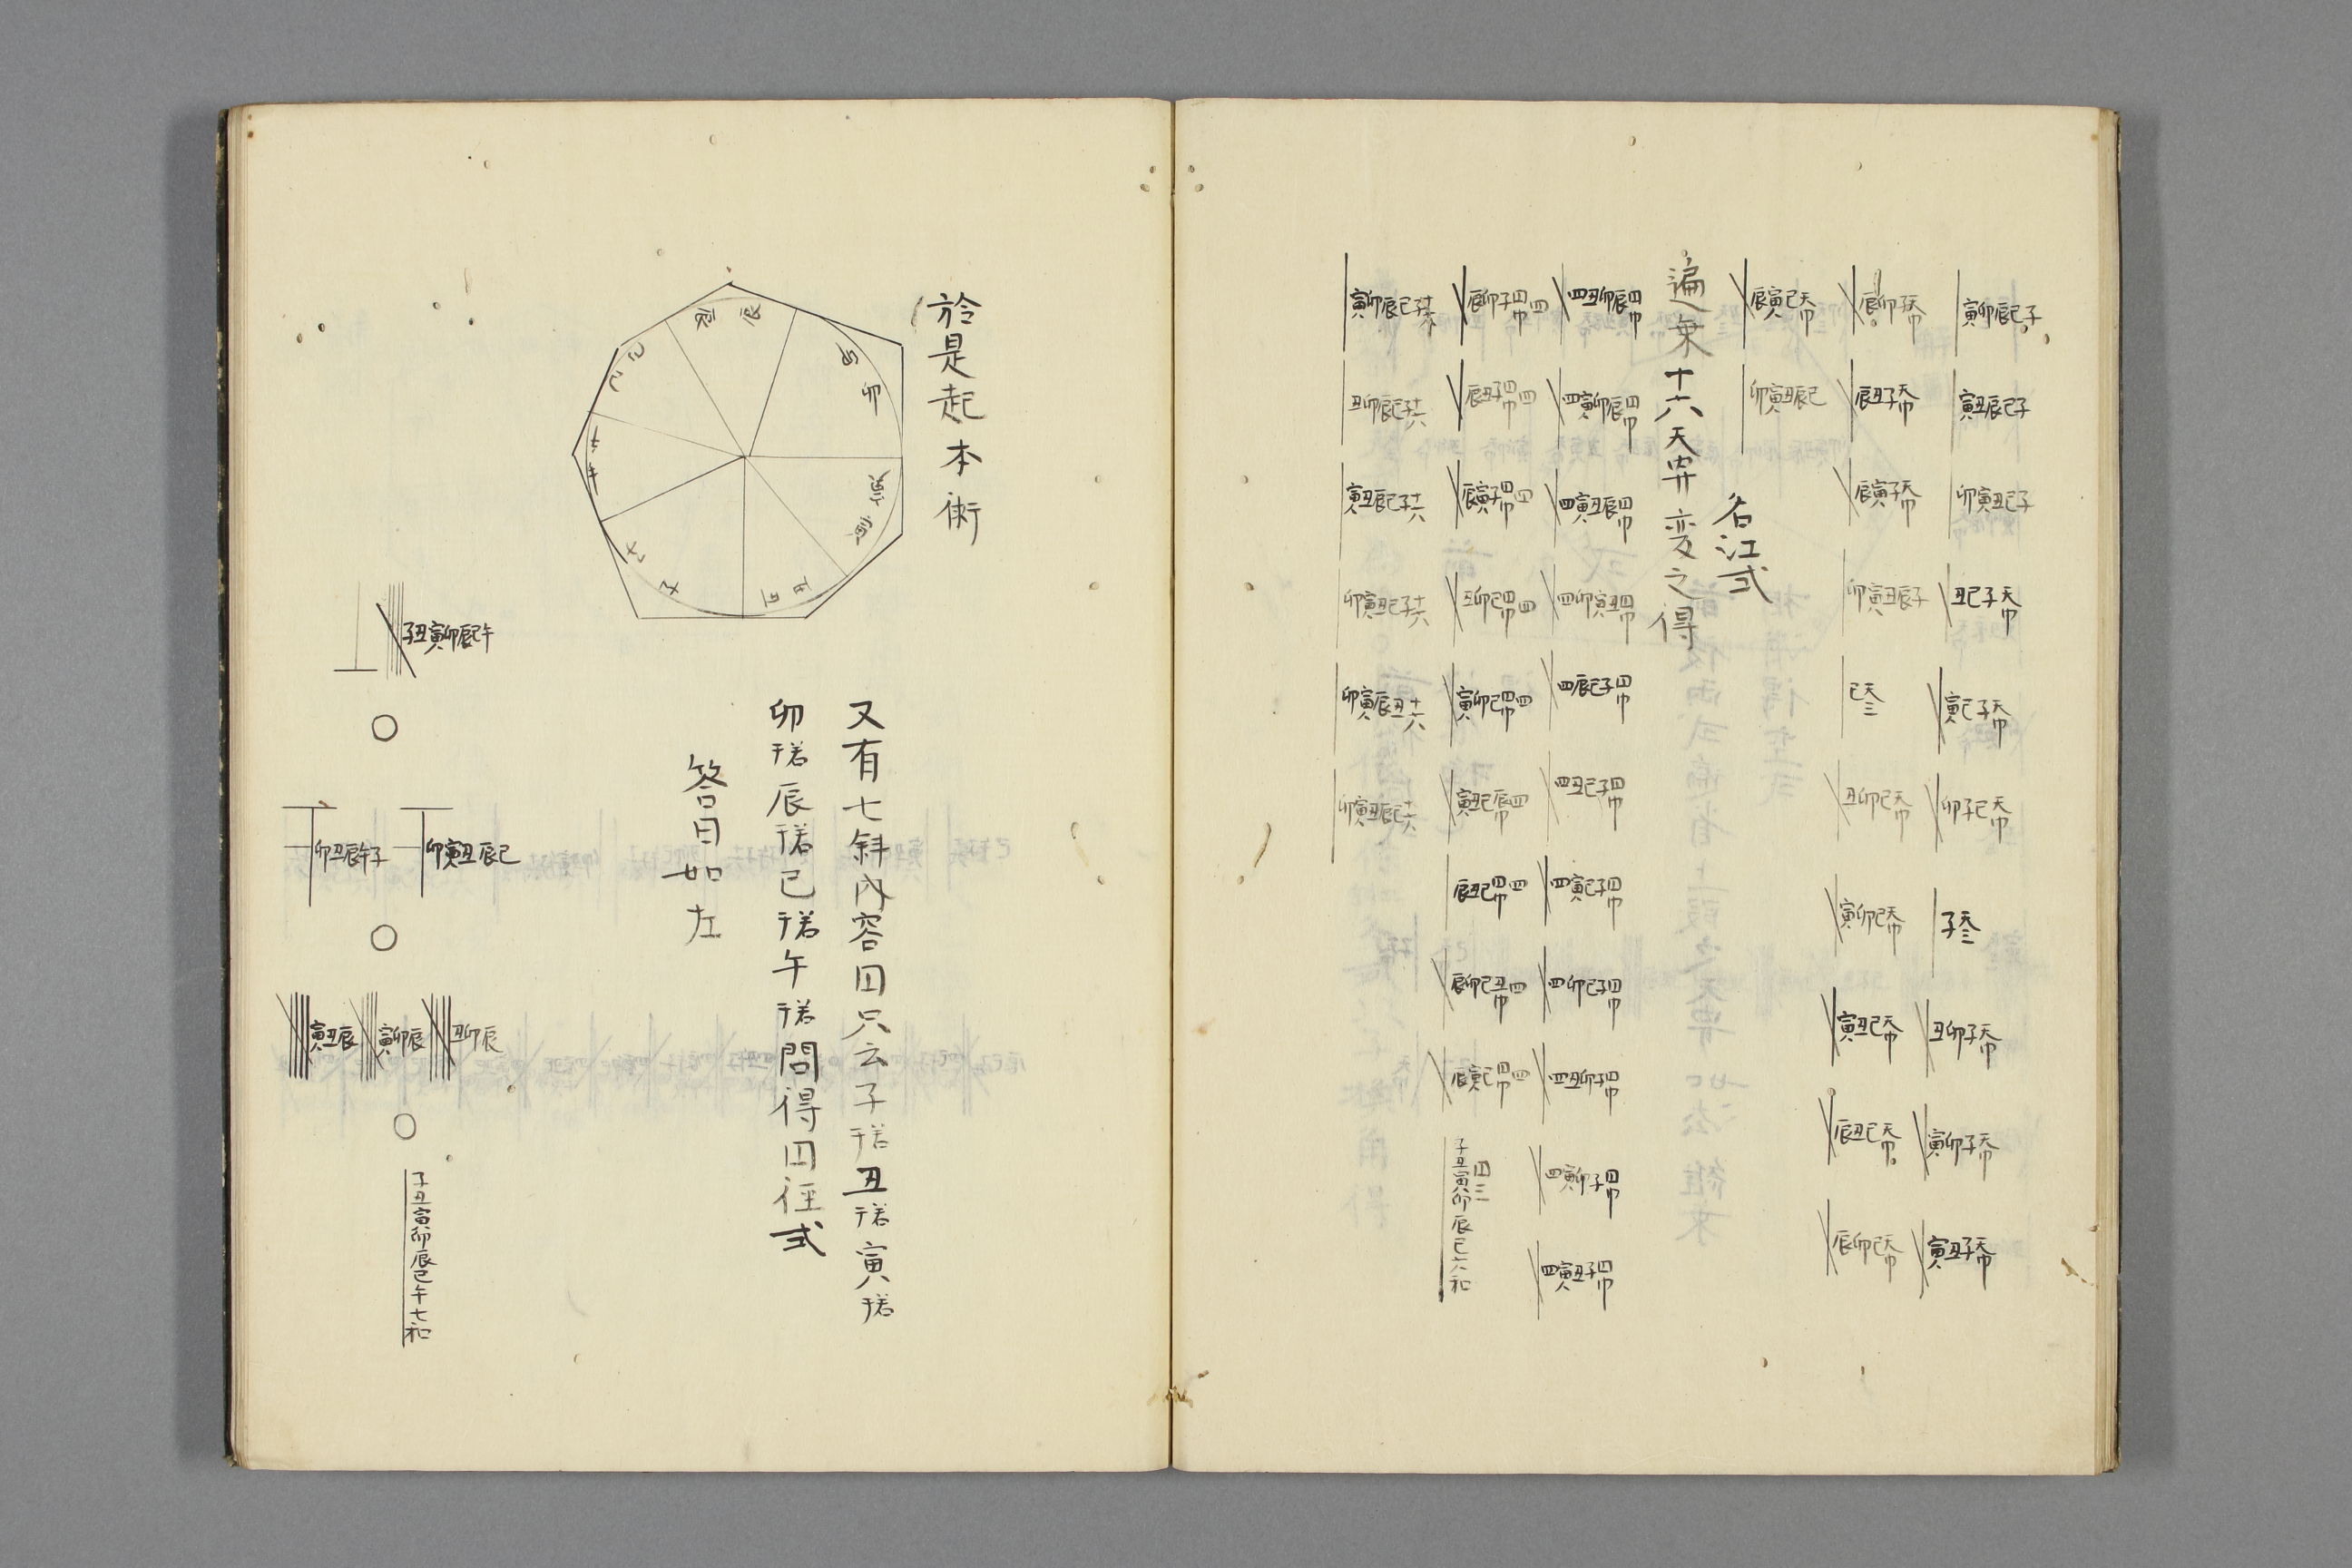 寅卯辰巳子 寅丑辰巳子 卯寅丑巳子 丑巳子天巾 寅巳子天巾 卯子巳天巾 子天三 丑卯子天巾 寅卯子天巾 寅丑子天巾
辰卯子天巾 辰丑子天巾 辰寅子天巾 卯寅丑辰子 巳天三 丑卯巳天巾 寅卯巳天巾 寅丑巳天巾 辰丑巳天巾 辰卯巳天巾
辰寅巳天巾 卯寅丑辰巳 名江式
遍乗十六天 変之得
四丑卯辰円巾 四寅卯辰円巾 四寅丑辰円巾 四卯寅丑円巾 四辰巳子円巾 四丑巳子円巾 四寅巳子円巾 四卯巳子円巾 四丑卯子円巾 四寅卯子円巾 四寅丑子円巾
辰卯子円巾四 辰丑子円巾四 辰寅子円巾四 丑卯巳円巾四 寅卯巳円巾四 寅丑巳 四 辰丑巳円巾四 辰卯巳 四 辰寅巳円巾四 円三 子丑寅卯辰巳六和
寅卯辰巳子十六 丑卯辰巳子十六 寅丑辰巳子十六 卯寅丑巳子十六 卯寅辰丑 十六 卯寅丑辰巳十六
於是起本術
卯 寅 丑 子 午 巳 辰
又有七斜内容円只云子若干丑若干寅若干
卯若干辰若干巳若干午若干問得円径式
答曰如左
子丑寅卯辰巳午
○
卯寅丑辰巳 卯丑辰午子
○
丑卯辰 寅卯辰 寅丑辰
○
子丑寅卯辰巳午七和